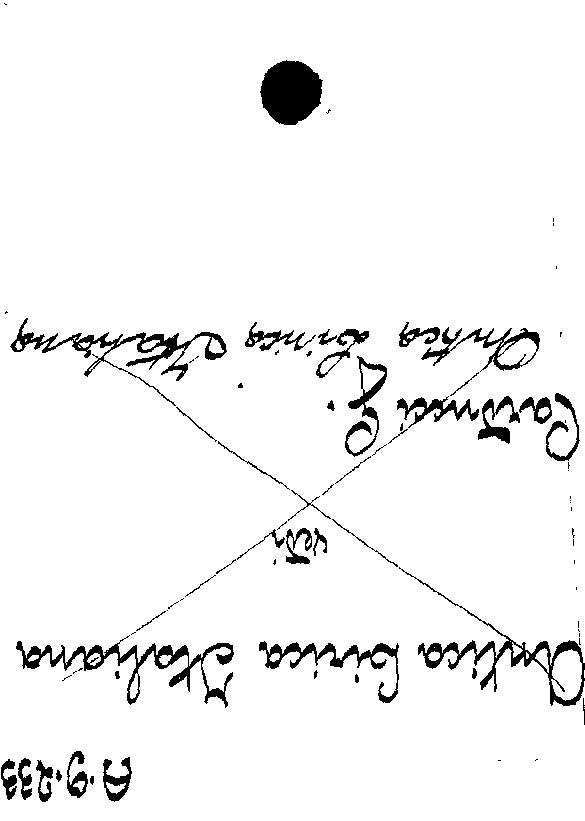 A.9.233
Antica Lirica Italiana
vedi
Carducci G.
Antica Lirica Italiana